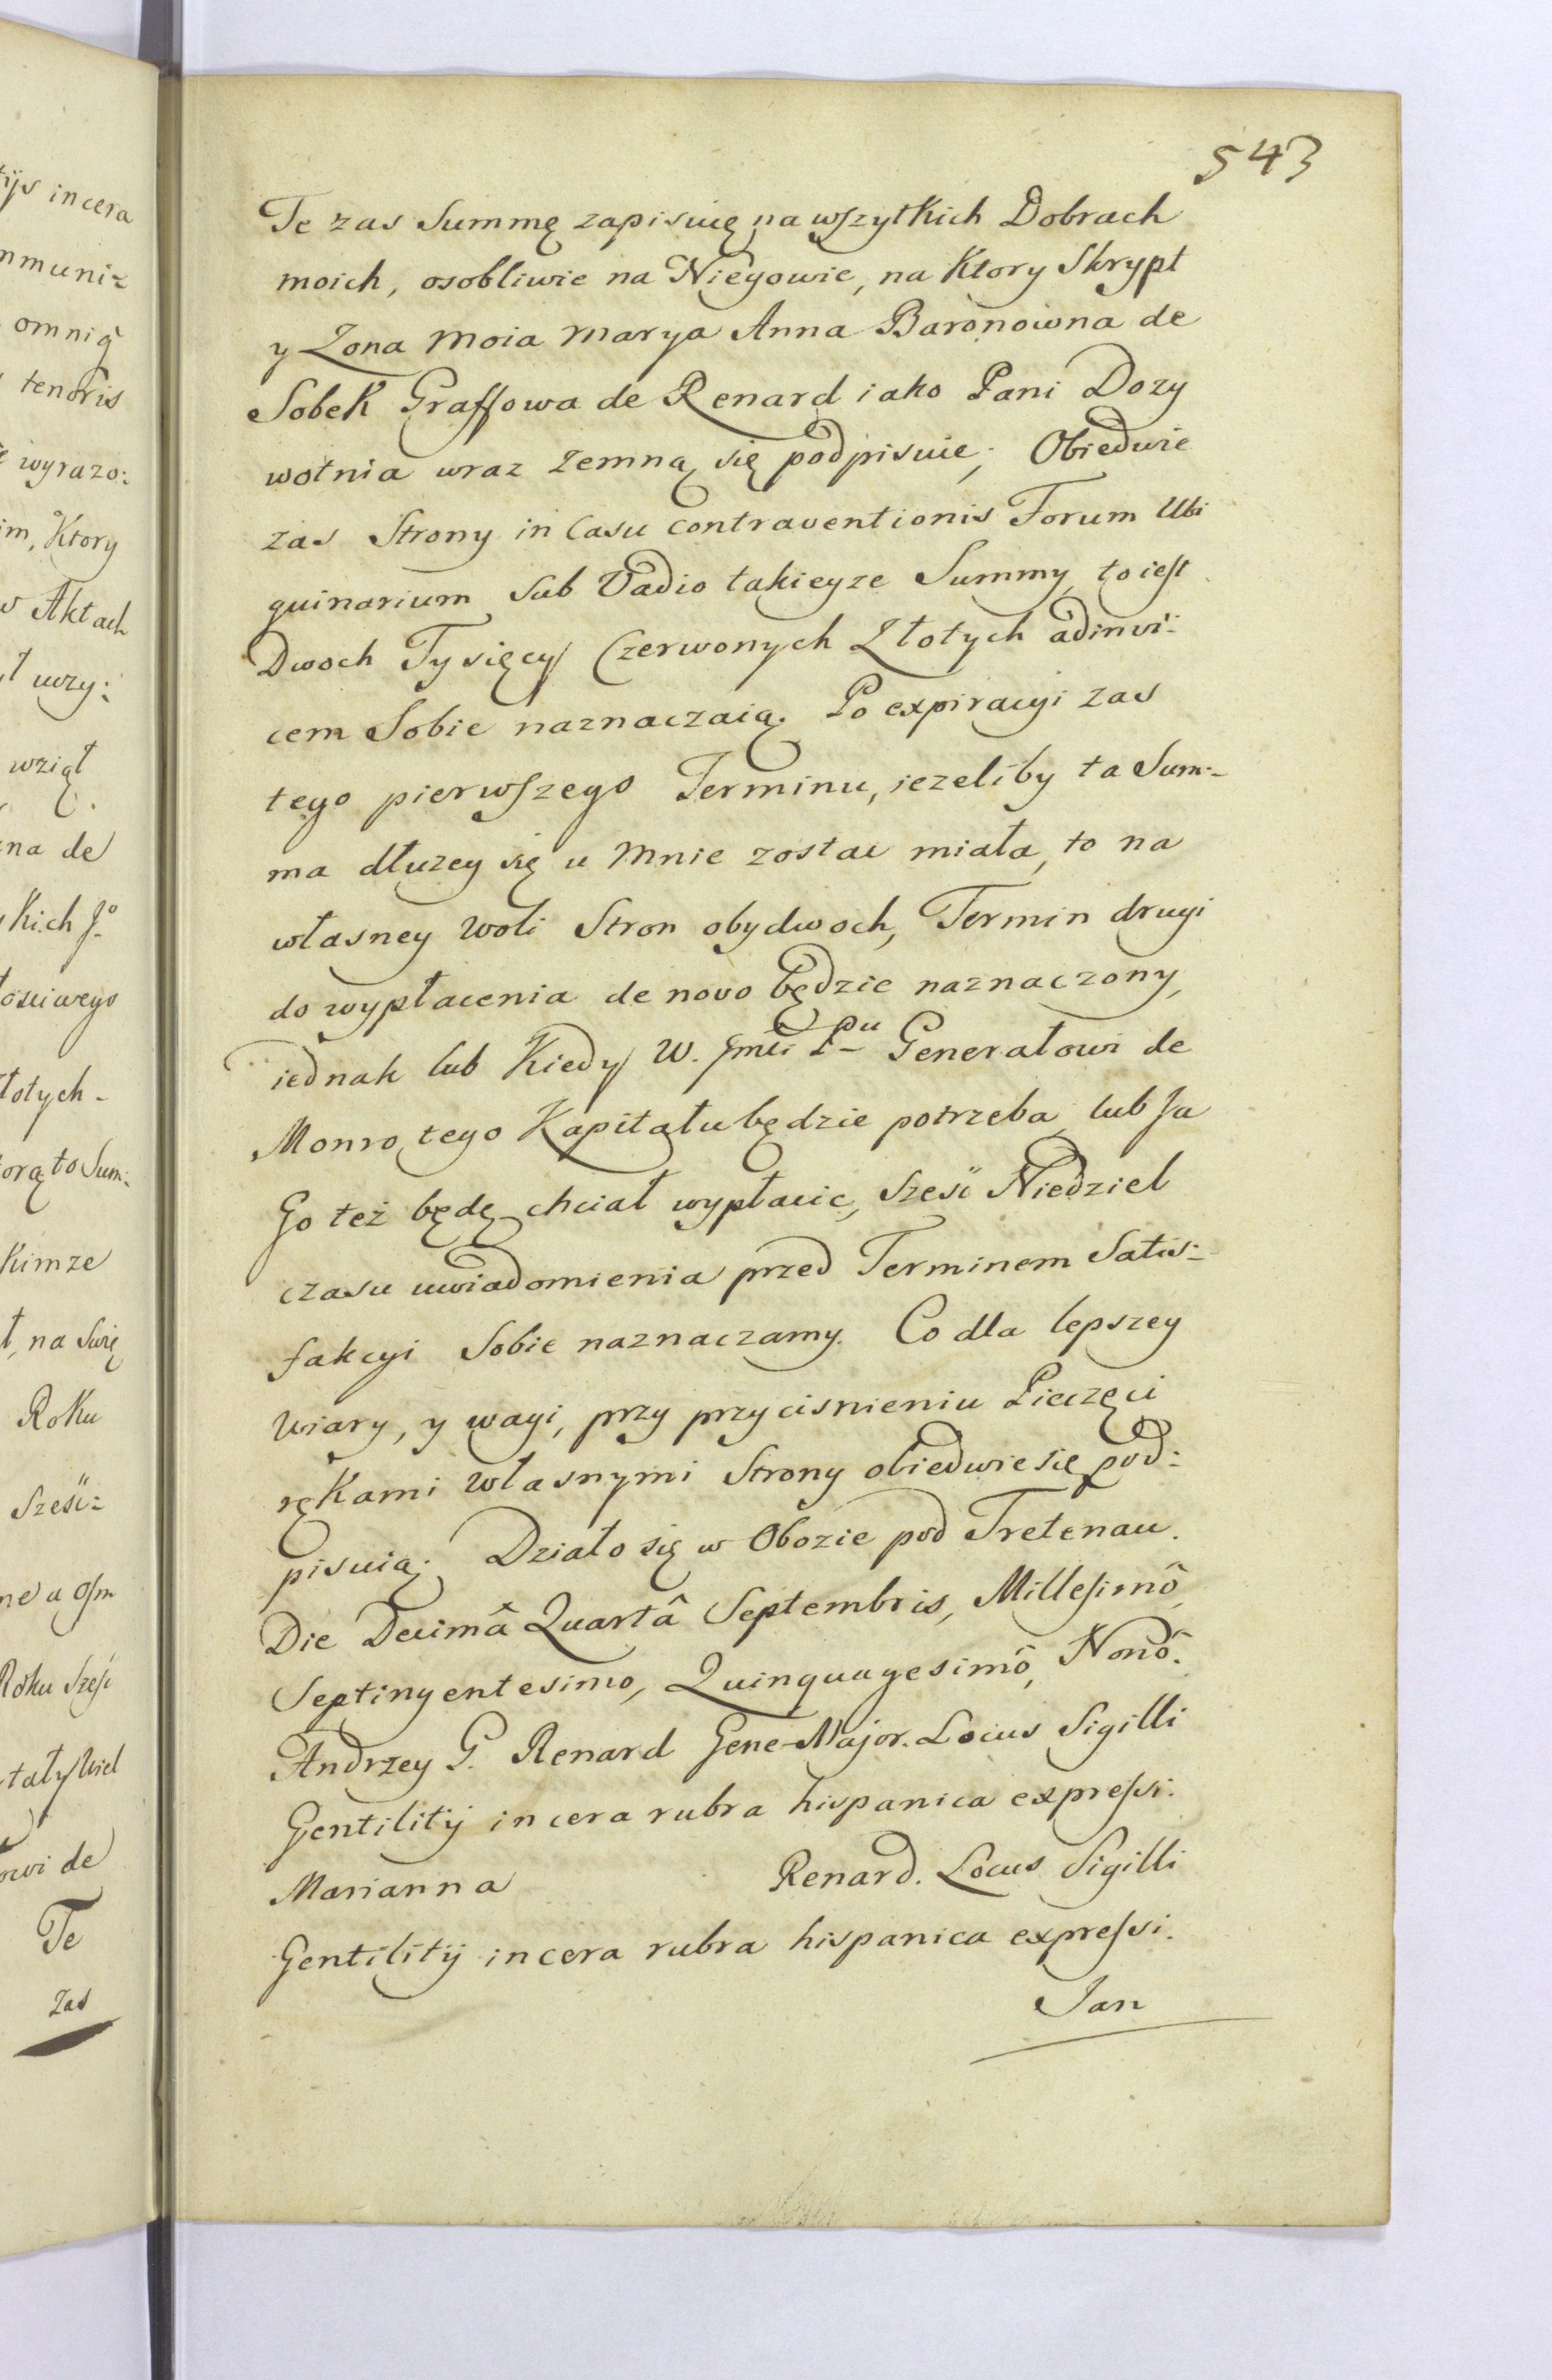 543
Te zas Summę zapisuię na wszytkich Dobrach
moich, osobliwie na Niegowie, na Ktory Skrypt
y Zona Moia Marya Anna Baronowna de
Sobek Graffowa de Renard iako Pani Dozy
wotnia wraz zemną się podpisuie; Obiedwie
zas Strony in Casu contraventionis Forum Ubi
quinarium Sub Vadio takieyze Summy, to iest
Dwoch Tysięcy Czerwonych Złotych adinvi:
cem Sobie naznaczaią. Po expiracyi zas
tego pierwszego Terminu, iezeliby ta Sum:
ma dłuzey się u Mnie zostac miała, to na
własney woli Stron obydwoch, Termin drugi
do wypłacenia de novo będzie naznaczony,
iednak lub Kiedy W. Jmći Pu Generałowi de
Monro tego Kapitału będzie potrzeba, lub Ja
Go też będę chciał wypłacic, Sześć Niedziel
czasu uwiadomienia przed Terminem Satis:
fakcyi Sobie naznaczamy. Co dla lepszey
Wiary, y wagi, przy przycisnieniu Pieczęci
rękami Własnymi Strony obiedwie się pod:
pisuią. Działo się w Obozie pod Tretenau.
Die Decimâ Quartâ Septembris, Millesimô,
Septingentesimo, Quinquagesimô, Nonô.
Andrzey G. Renard Gene-Major. Locus Sigilli
Gentilitij in cera rubra hispanica expressi.
Marianna Renard. Locus Sigilli
Gentilitij in cera rubra hispanica expressi.
Jan
in cera
omniq̃
tenoris
wyrazo:
im, Ktory
Aktach
wziął
na de
Kich Jo
łosciwego
łotych
orą to Sum:
Kimze
na Swię
Roku
Sześć:
Roku Sześć
owi de
Te
zas